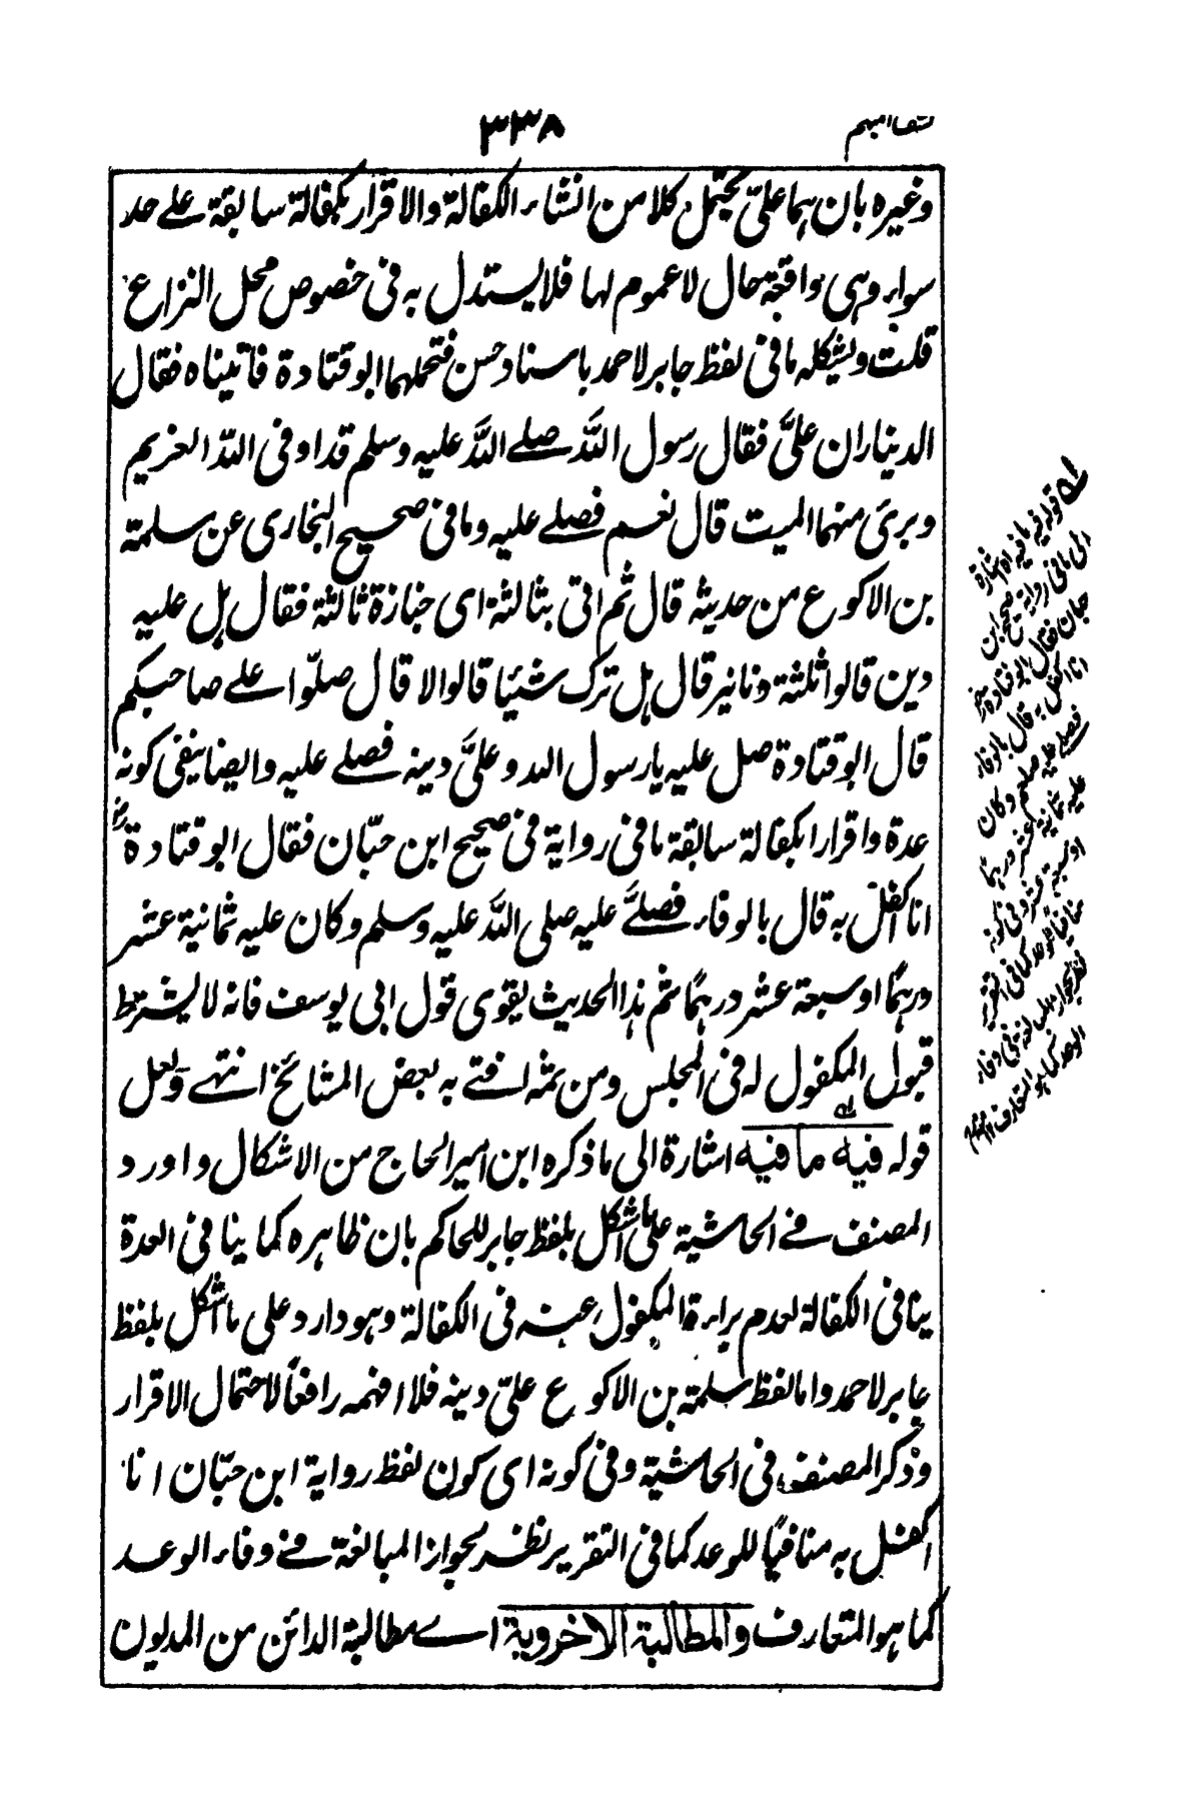 ٣٣٨
وغيره بان هما علىّ يحتمل كلا من انشاء الكفالة والاقرار بكفالة سابقة على حد
سواء وهى واقعة حال لا عموم لها فلا يستدل به فى خصوص محل النزاع
قلت ويشكله ما فى لفظ جابر لاحمد باسناد حسن فتحملهما ابو قتادة فاتيناه فقال
الديناران علىَّ فقال رسول اللّٰه صلے اللّٰه عليه وسلم قد اوفى اللّٰه الغريم
وبرئ منهما الميت قال نعم فصلے عليه وما فى صحيح البخارى عن سلمة
بن الاكوع من حديثه قال ثم اتى بثالثة اى جنازة ثالثة فقال هل عليه
دين قالوا ثلثة دنانير قال هل ترك شيئا قالوا لا قال صلّوا علے صاحبكم
قال ابو قتادة صل عليه يا رسول الله وعلىَّ دينه فصلے عليه وايضا ينفى كونه
عدة واقرارا بكفالة سابقة ما فى رواية فى صحيح ابن حبّان فقال ابو قتادة
انا اكفل به قال بالوفاء فصلےَّ عليه صلى اللّٰه عليه وسلم وكان عليه ثمانية عشر
درهمًا او سبعة عشر درهمًا ثم هذا الحديث يقوى قول ابى يوسف فانه لا يشترط
قبول المكفول له فى المجلس ومن ثمه افتے به بعض المشائخ انتهے ولعل
قوله فيه ما فيه اشارة الى ما ذكره ابن امير الحاج من الاشكال واورد
المصنف فے الحاشية على ما اشكل بلفظ جابر للحاكم بان ظاهره كما ينافى العدة
ينافى الكفالة لعدم براءة المكفول عنه فى الكفالة وهو وارد على ما اشكل بلفظ
جابر لاحمد واما لفظ سلمة بن الاكوع علىّ دينه فلا افهمه رافعًا لاحتمال الاقرار
وذكر المصنف فى الحاشية وفى كونه اى كون لفظ رواية ابن حبّان انا
اكفل به منافيًا للوعد كما فى التقرير نظر لجواز المبالغة فے وفاء الوعد
كما هو المتعارف والمطالبة الاخروية اے مطالبة الدائن من المديون
له قوله فيه ما فيه اه اشارة
الى ما فى رواية صحيح ابن
حبان فقال ابو قتادة
انا اكفل به قال بالوفاء
فصلے عليه صلعم وكان
عليه ثمانية عشر درهما
او سبعة عشر وفى كونه
منافيا للوعد كما فى التقرير
نظر لجواز المبالغة فى وفاء
الوعد كما هو المتعارف ١٢